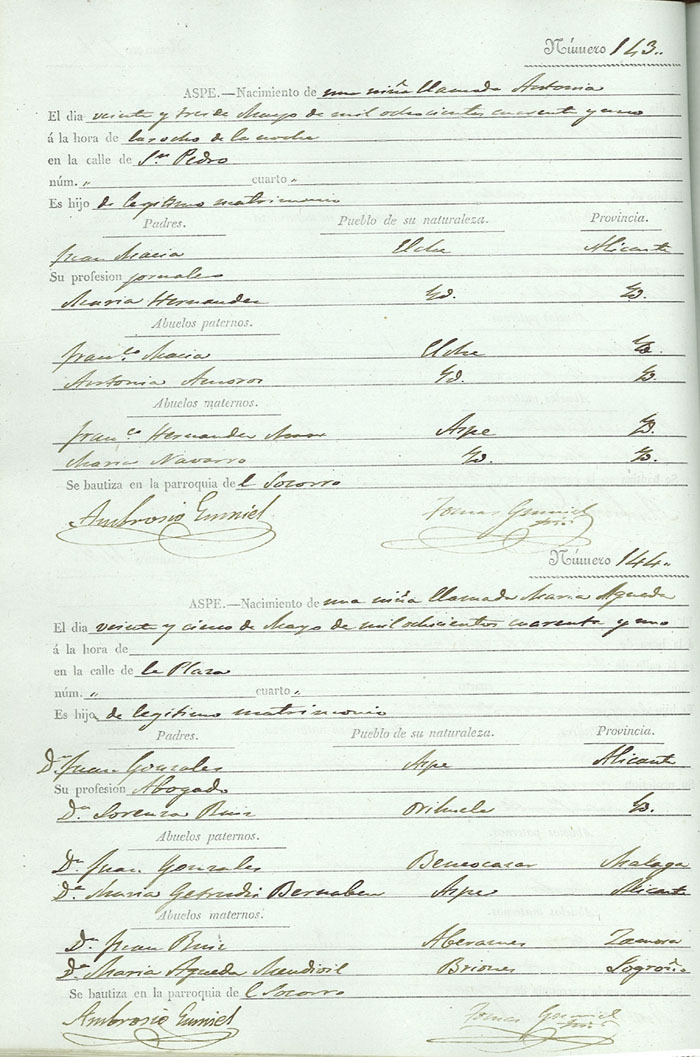 Número 143..
ASPE.—Nacimiento de una niña llamada Antonia
El dia veinte y tres de Mayo de mil ochocientos cuarenta y uno
á la hora de las ocho de la noche
en la calle de Sn Pedro
núm. „ cuarto „
Es hijo de legitimo matrimonio
Padres. Pueblo de su naturaleza. Provincia.
Juan Macia Elche Alicante
Su profesion jornalero
Maria Hernandez Yd. Yd.
Abuelos paternos.
Franco Macia Elche Yd.
Antonia Amoros Yd. Yd.
Abuelos maternos.
Franco Hernandez Aspe Yd.
Maria Navarro Yd. Yd.
Se bautiza en la parroquia del Socorro
Ambrosio Gumiel Tomas Gumiel
Número 144..
ASPE.—Nacimiento de una niña llamada Maria Agueda
El dia veinte y cinco de Mayo de mil ochocientos cuarenta y uno
á la hora de
en la calle de la Plaza
núm. „ cuarto „
Es hijo de legitimo matrimonio
Padres. Pueblo de su naturaleza. Provincia.
Dn Juan Gonzales Aspe Alicante
Su profesion Abogado
Da Lorenza Ruiz Orihuela Yd.
Abuelos paternos.
Dn Juan Gonzales Malaga
Da Maria Getrudis Bernabeu Aspe Alicante
Abuelos maternos.
Dn Juan Ruiz Zamora
Da Maria Agueda Mendivil Briones Logroño
Se bautiza en la parroquia del Socorro
Ambrosio Gumiel Tomas Gumiel